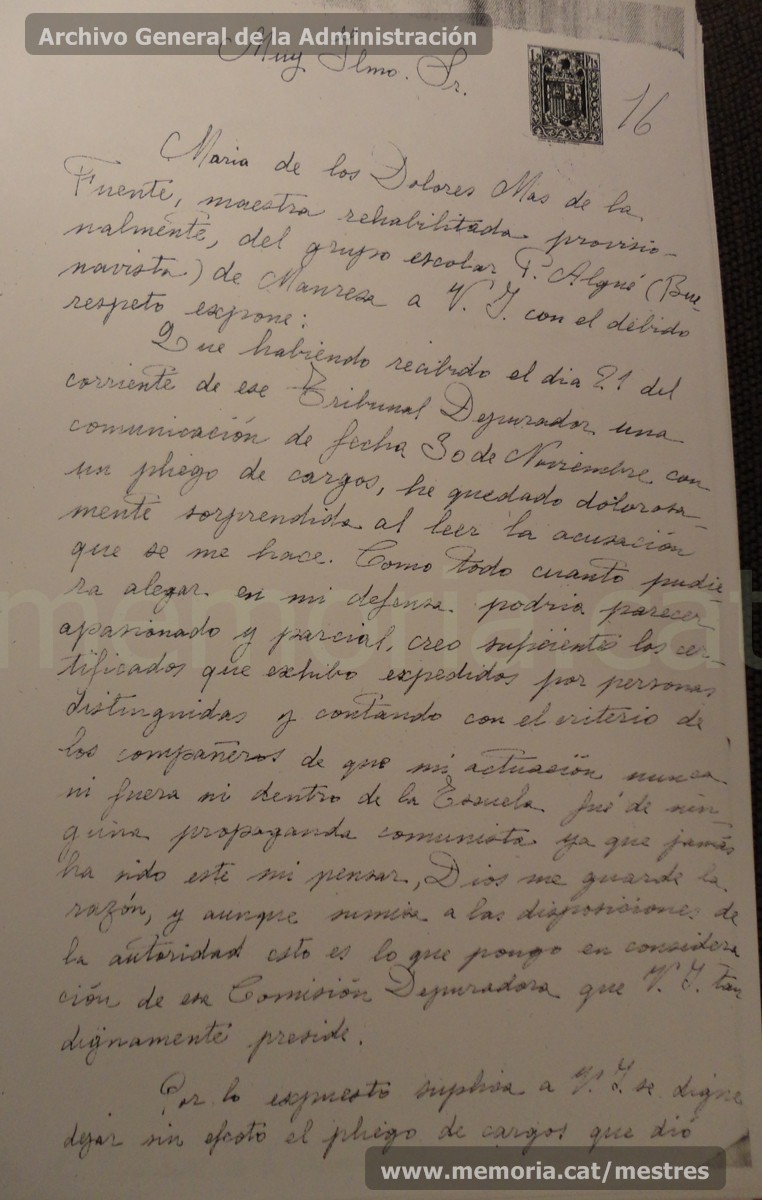 Archivo General de la Administración
Muy Ilmo. Sr.
1 Pts
16
Maria de los Dolores Mas de la
Fuente, maestra rehabilitada provisio-
nalmente, del grupo escolar P. Algué (Bue-
navista) de Manresa a V. I. con el debido
respeto expone:
Que habiendo recibido el dia 21 del
corriente de ese Tribunal Depurador una
comunicación de fecha 30 de Noviembre con
un pliego de cargos, he quedado dolorosa-
mente sorprendida al leer la acusación
que se me hace. Como todo cuanto pudie-
ra alegar en mi defensa podria parecer
apasionado y parcial, creo suficientes los cer-
tificados que exhibo expedidos por personas
distinguidas y contando con el criterio de
los compañeros de que mi actuación nunca
ni fuera ni dentro de la Escuela fué de nin-
guna propaganda comunista ya que jamás
ha sido este mi pensar, Dios me guarde la
razón, y aunque sumisa a las disposiciones de
la autoridad esto es lo que pongo en considera
ción de esa Comisión Depuradora que V. I. tan
dignamente preside.
Por lo expuesto suplica a V. I. se digne
dejar sin efecto el pliego de cargos que dió
memoria.cat
www.memoria.cat/mestres